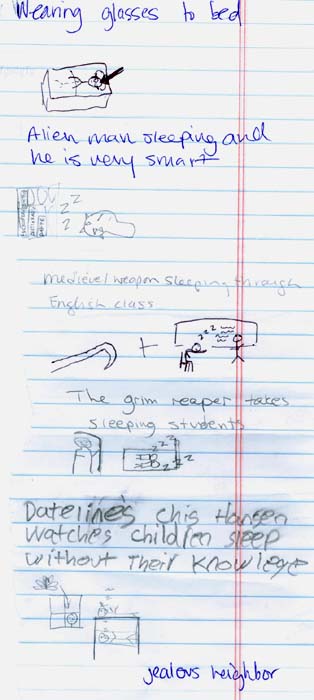 Wearing glasses to bed
Alien man sleeping and
he is very smart
z z z
medievel weapon sleeping through
English class
+
z z z
The grim reaper takes
sleeping students
z z z
z z z
Dateline's Chis Hansen
Watches children sleep
without Their Knowlege
jealous neighbor